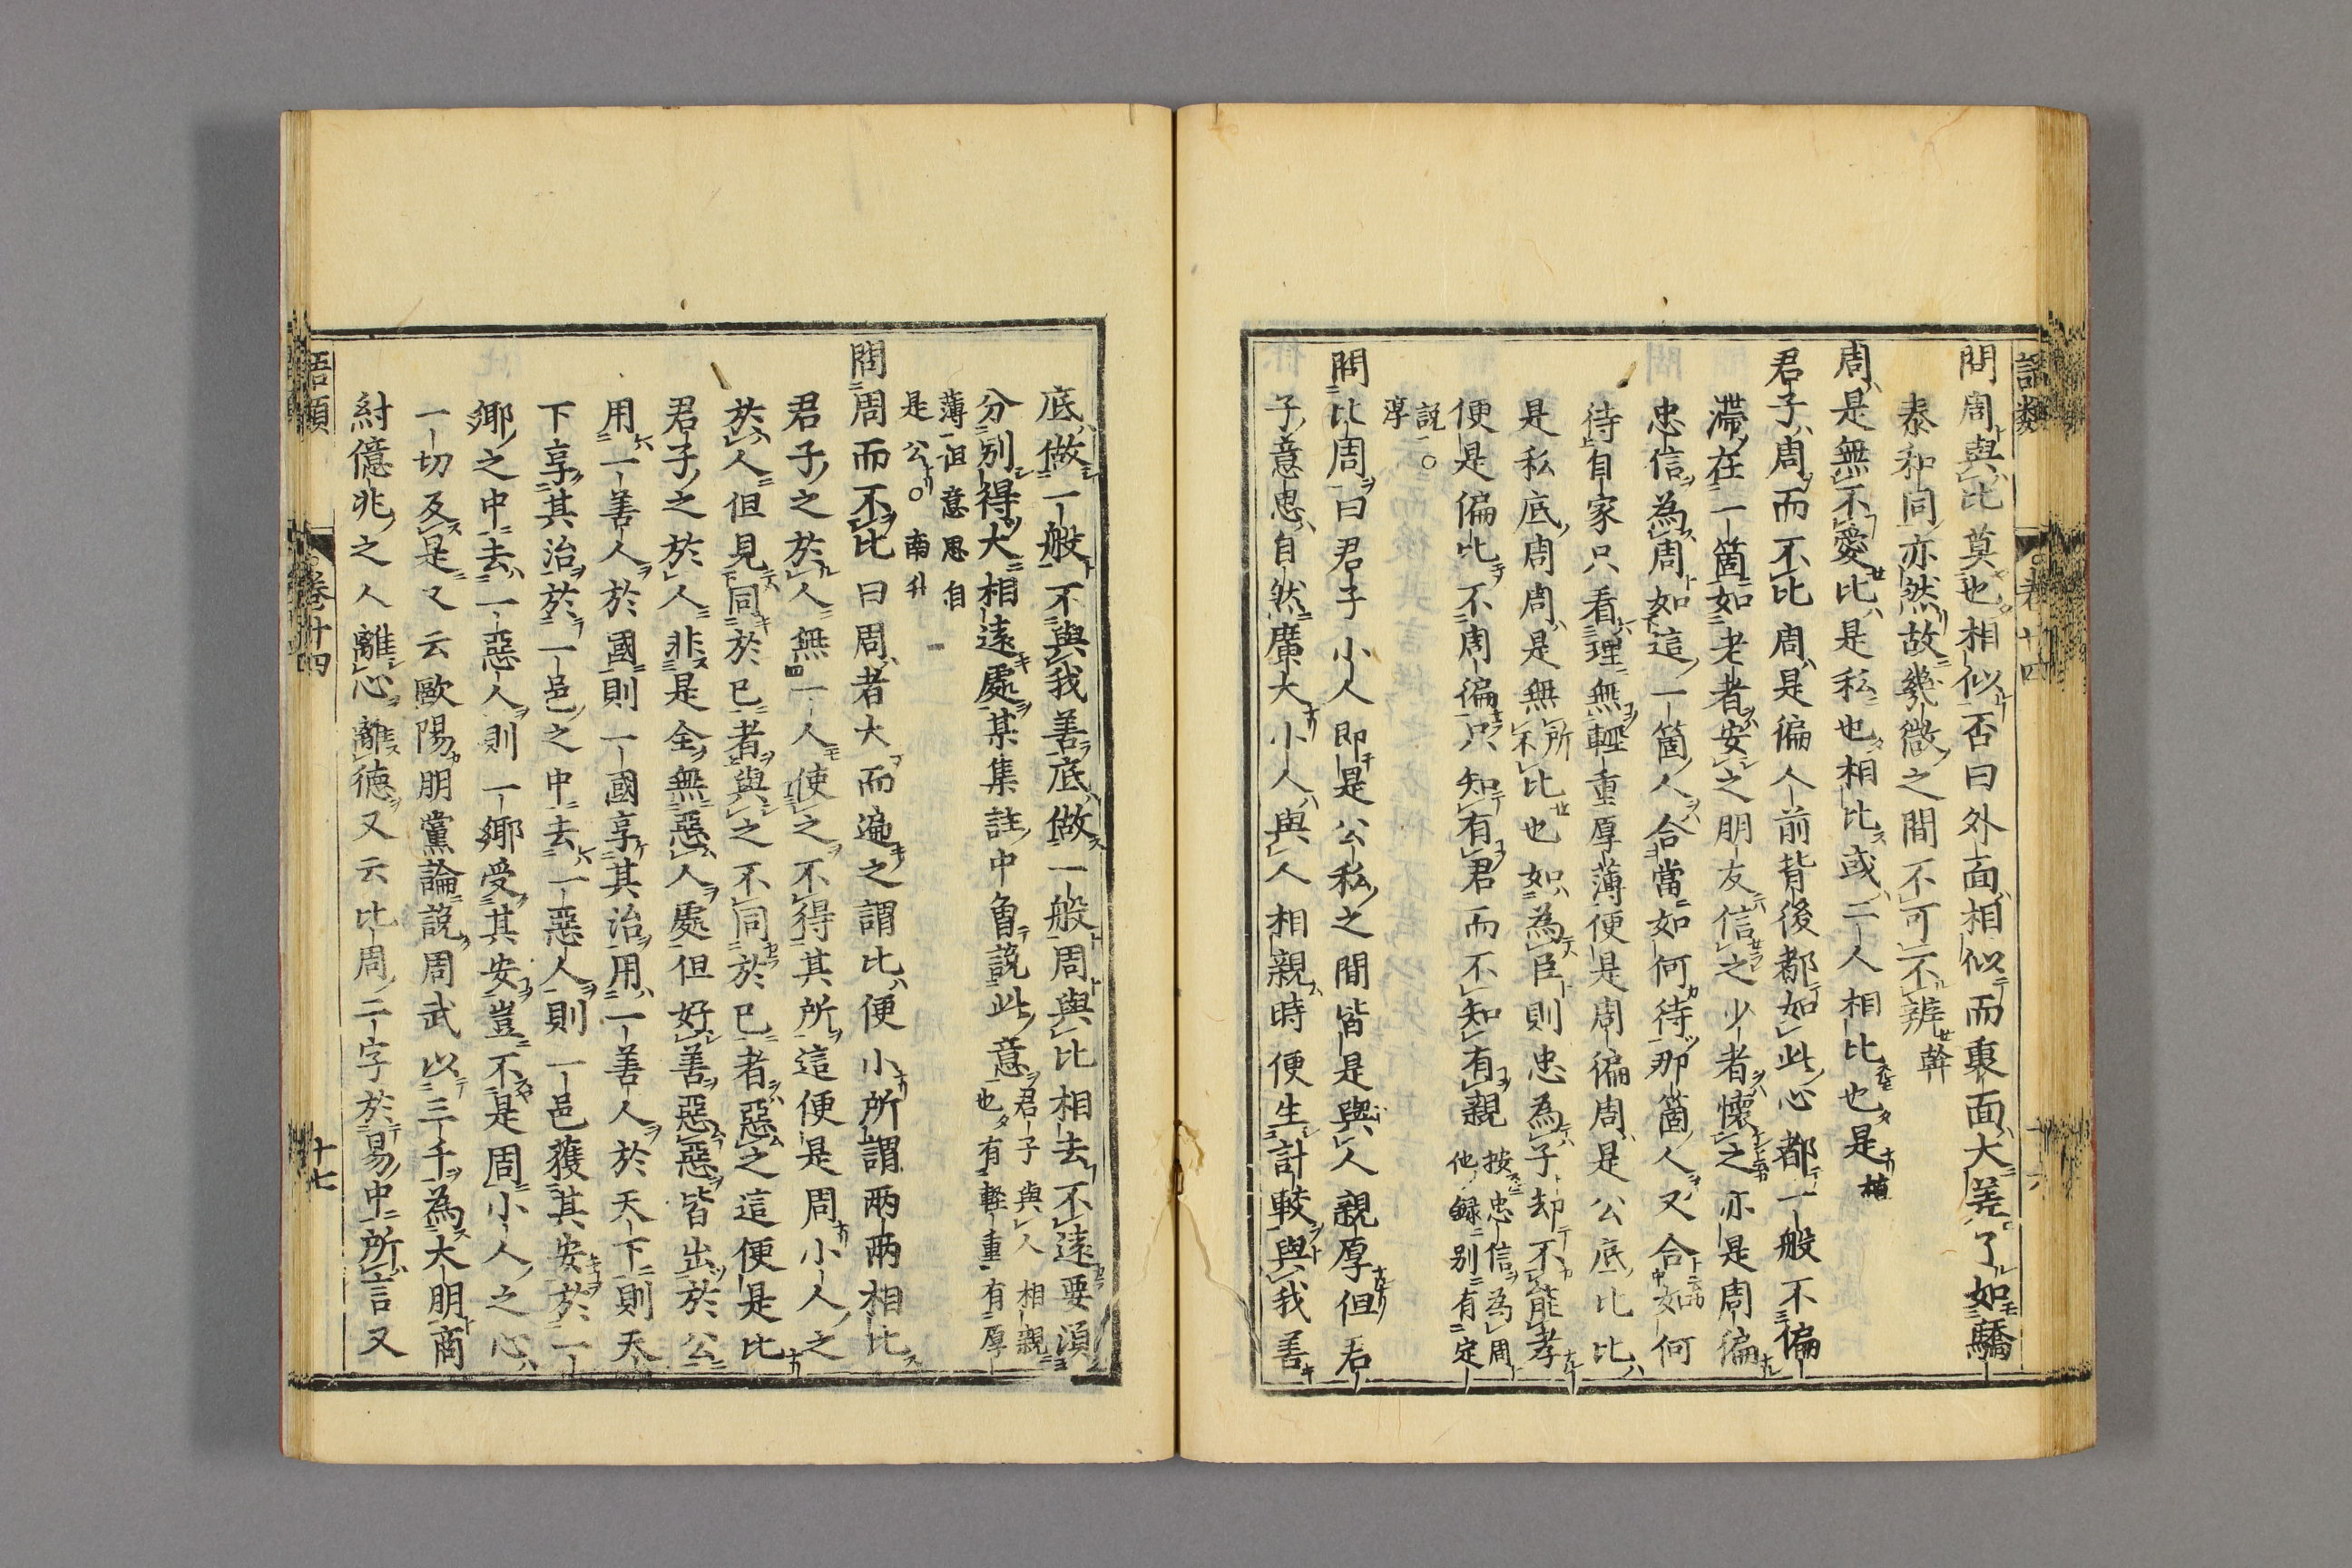 語類 卷十四
問周與比莫也相似否曰外面相似而裏面大差了如驕
泰和同亦然故幾微之間不可不辨 榦
周是無不愛比是私也相比或二人相比也是 植
君子周而不比周是徧人前背後都如此心都一般不偏
滯在一箇如老者安之朋友信之少者懷之亦是周徧
忠信為周如這一箇人合當如何待那箇人又合如何
待自家只看理無輕重厚薄便是周徧周是公底比比
是私底周周是無所不比也如為臣則忠為子却不能孝
便是偏比不周徧只知有君而不知有親 按忠信為周
他録別有定
說○
淳
問比周曰君子小人即是公私之間皆是與人親厚但君
子意思自然廣大小人與人相親時便生計較與我善
底做一般不與我善底做一般周與比相去不遠要須
分別得大相遠處某集註中曾說此意 君子與人相親
也有輕重有厚
薄但意思自
是公○南升
問周而不比曰周者大而遍之謂比便小所謂兩兩相比
君子之於人無一人使之不得其所這便是周小人之
於人但見同於己者與之不同於己者惡之這便是比
君子之於人非是全無惡人處但好善惡惡皆出於公
用一善人於國則一國享其治用一善人於天下則天
下享其治於一邑之中去一惡人則一邑獲其安於一
鄉之中去一惡人則一鄉受其安豈不是周小人之心
一切反是又云歐陽朋黨論說周武以三千為大朋商
紂億兆之人離心離德又云比周二字於易中所言又
語類 卷十四 十七